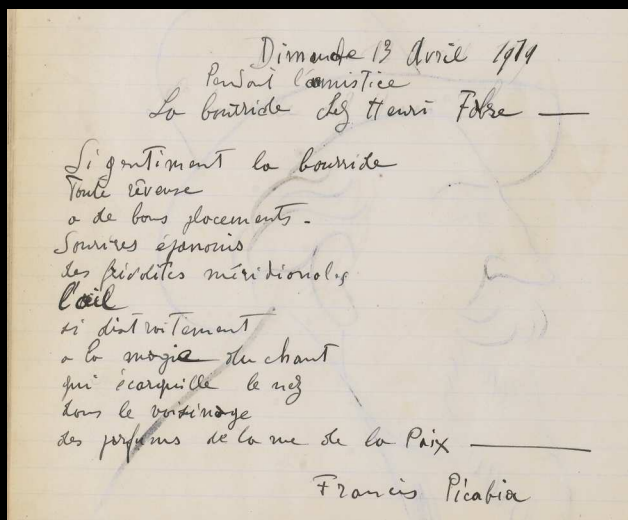 Dimanche 13 Avril 1919
Pendant l'armistice
La bourride chez Henri Fabre —
Si gentiment la bourride
Toute rêveuse
a de bons placements -
Sourires épanouis
des frivolités méridionales
l'ail
si distraitement
a la magie du chant
qui écarquille le nez
dans le voisinage
des parfums de la rue de la Paix —
Francis Picabia